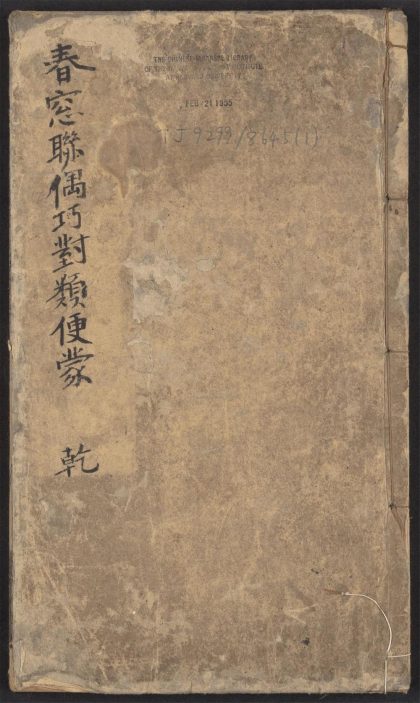 春窓聯偶巧對類便蒙 乾
THE CHINESE-JAPANESE LIBRARY
FEB 21 1955
TJ 9299/8645(1)